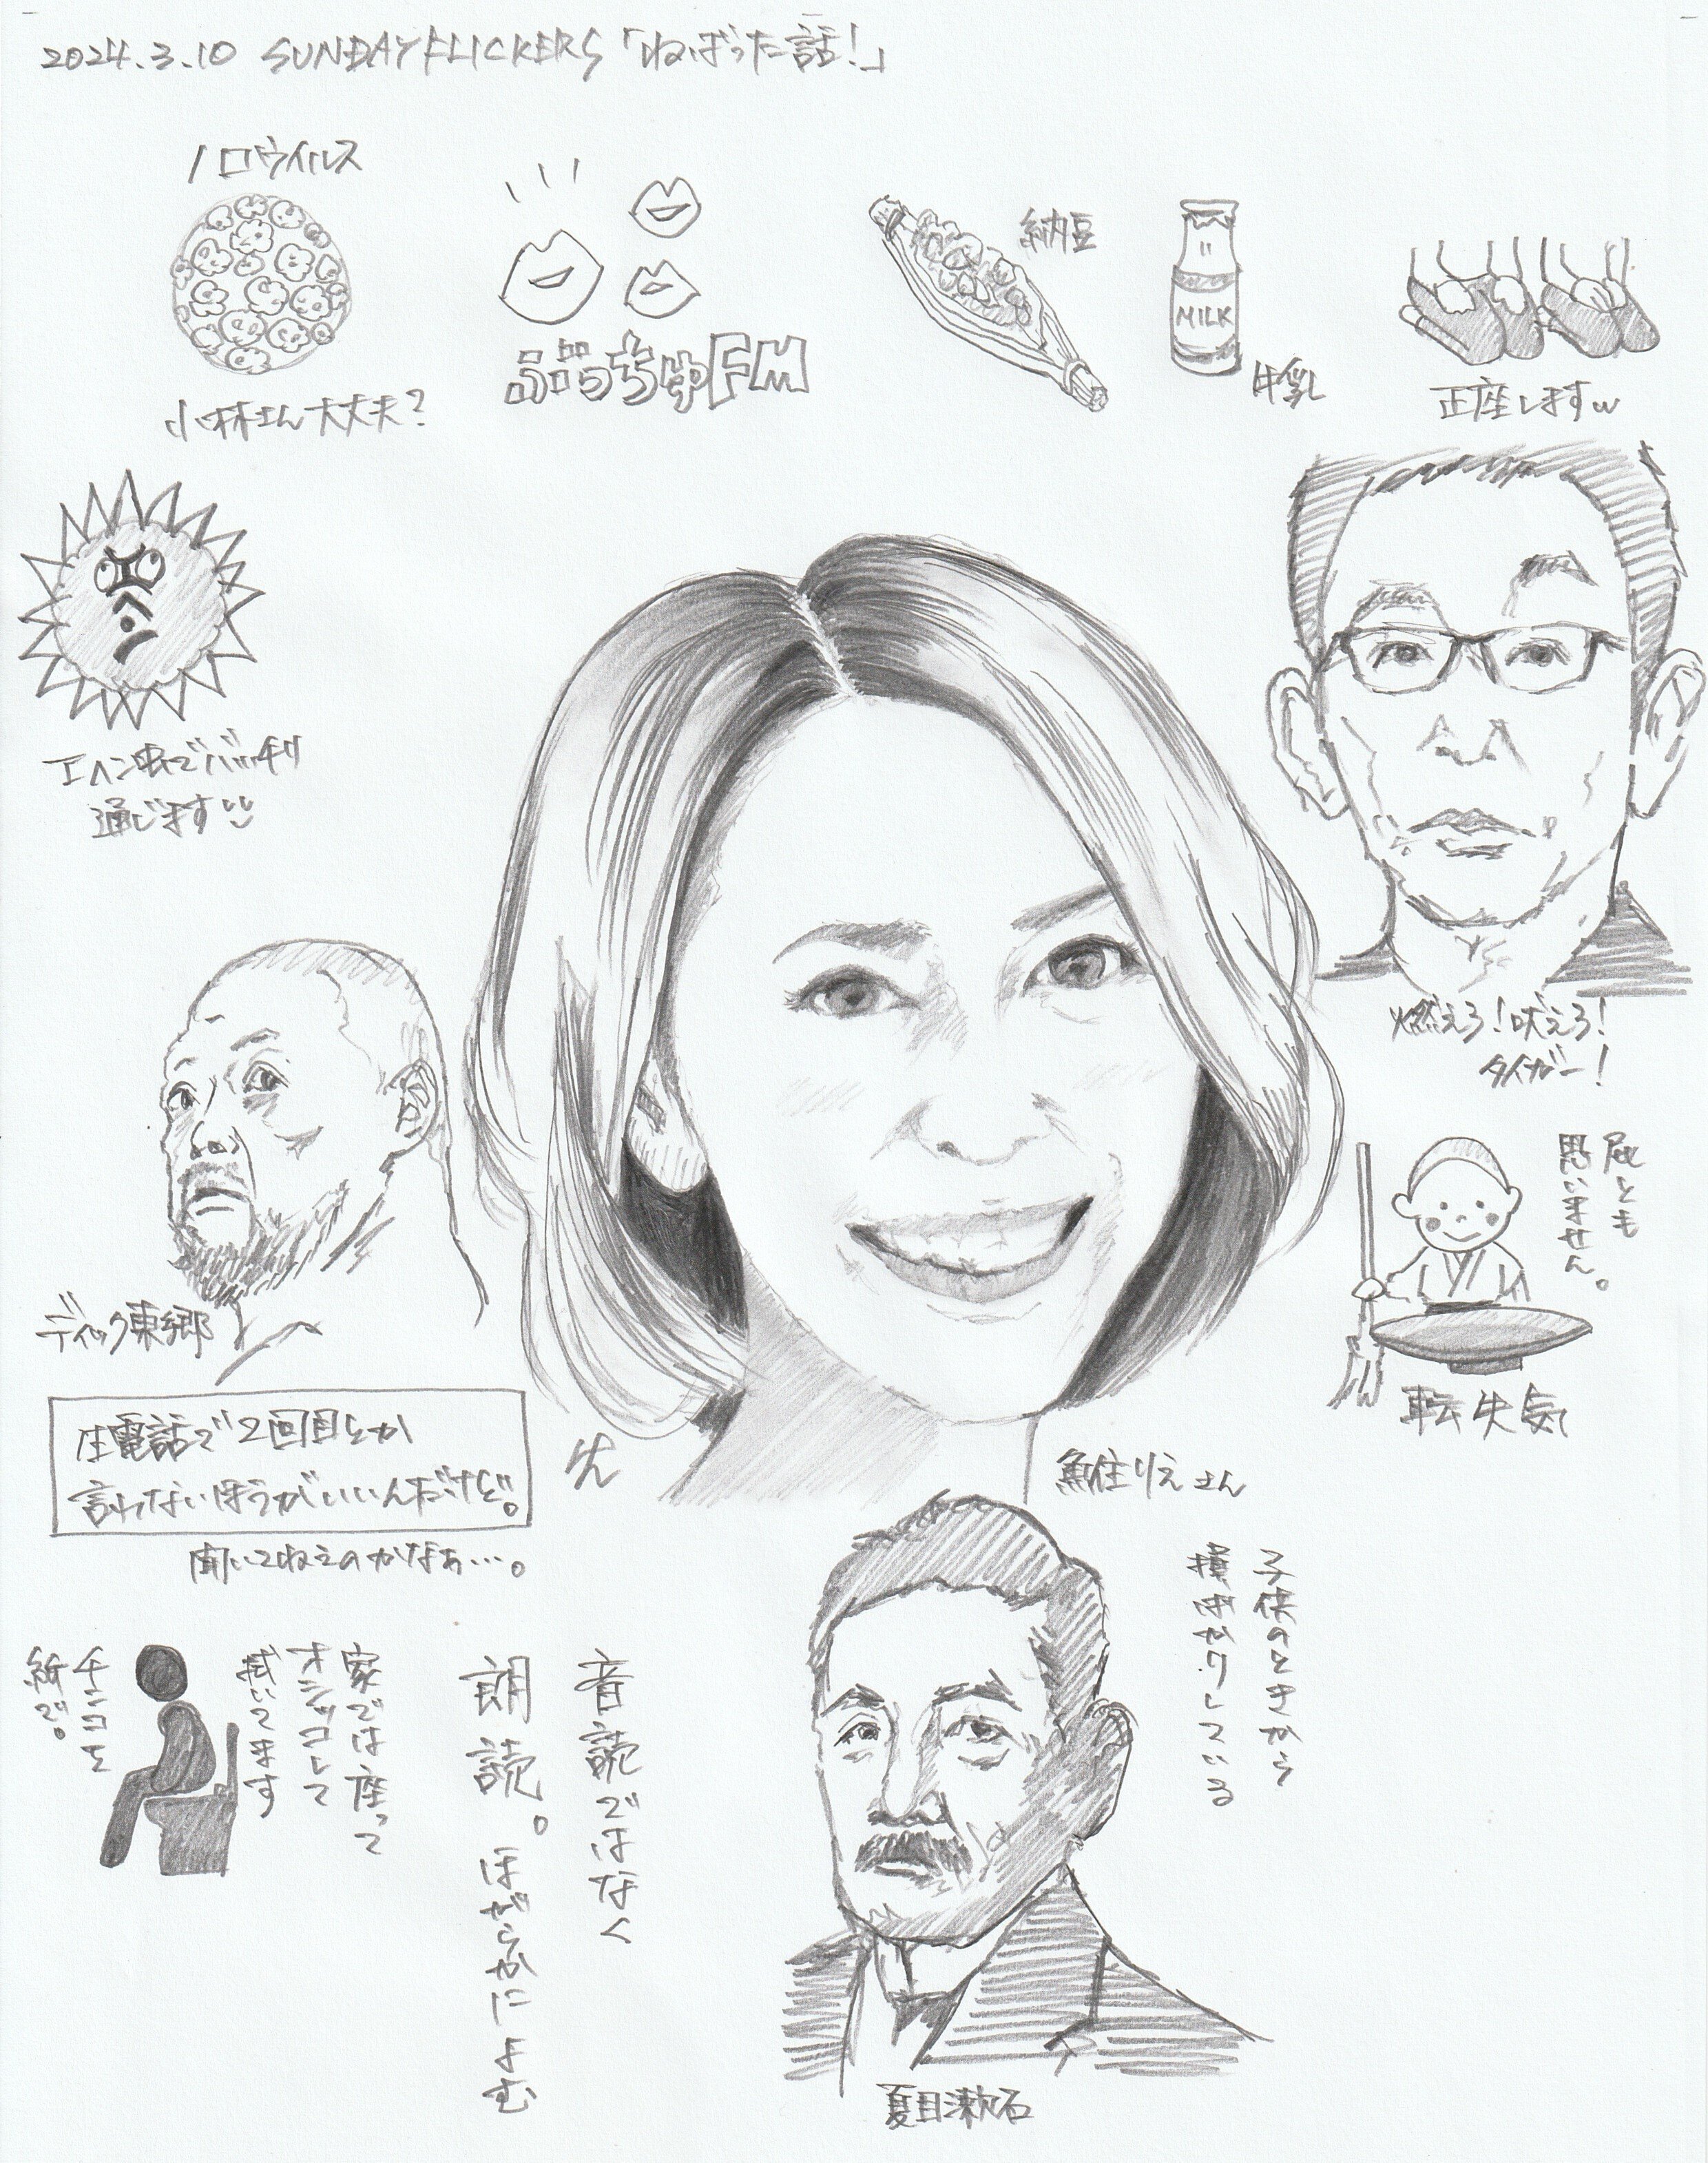 2024.3.10 SUNDAY FLICKERS「ねばった話！」
ノロウイルス
小林さん大丈夫？
ぶちゅFM
納豆
MILK
牛乳
正座しますw
エヘン虫でバッチリ
通じます
燃えろ！吠えろ！
タイガー！
ディック東郷
屁とも
思いません。
転失気
生電話で2回目とか
言わないほうがいいんだけど。
聞いてねえのかなぁ…。
魚住りえさん
子供のときから
横ばかりしている
家では座って
オシッコして
拭いてます
チンコを
紙で。
音読ではなく
朗読。ほがらかによむ
夏目漱石